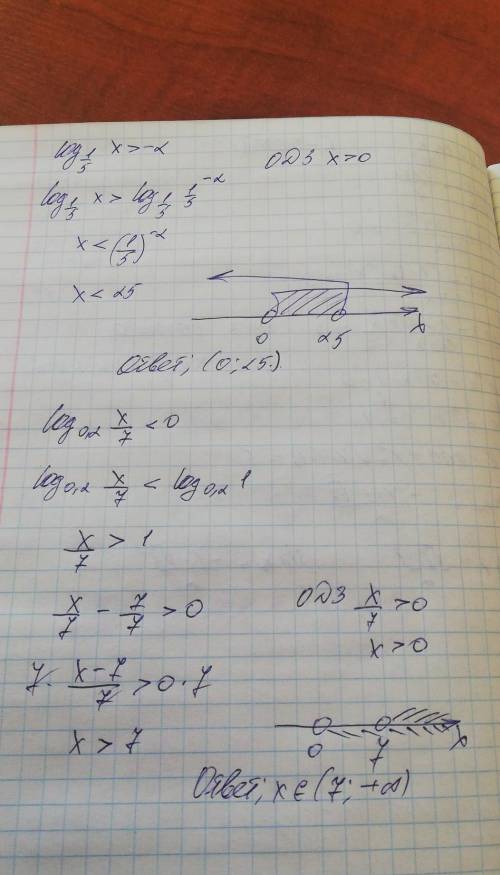 log_{1/5} x > -2     ОДЗ x > 0
log_{1/5} x > log_{1/5} 1/5^{-2}
x < (1/5)^{-2}
x < 25
0 25 x
Ответ; (0; 25).
log_{0,2} x/7 < 0
log_{0,2} x/7 < log_{0,2} 1
x/7 > 1
x/7 - 7/7 > 0     ОДЗ x/7 > 0
x > 0
7 · (x-7)/7 > 0 · 7
x > 7
0 7 x
Ответ; x ∈ (7; +∞)